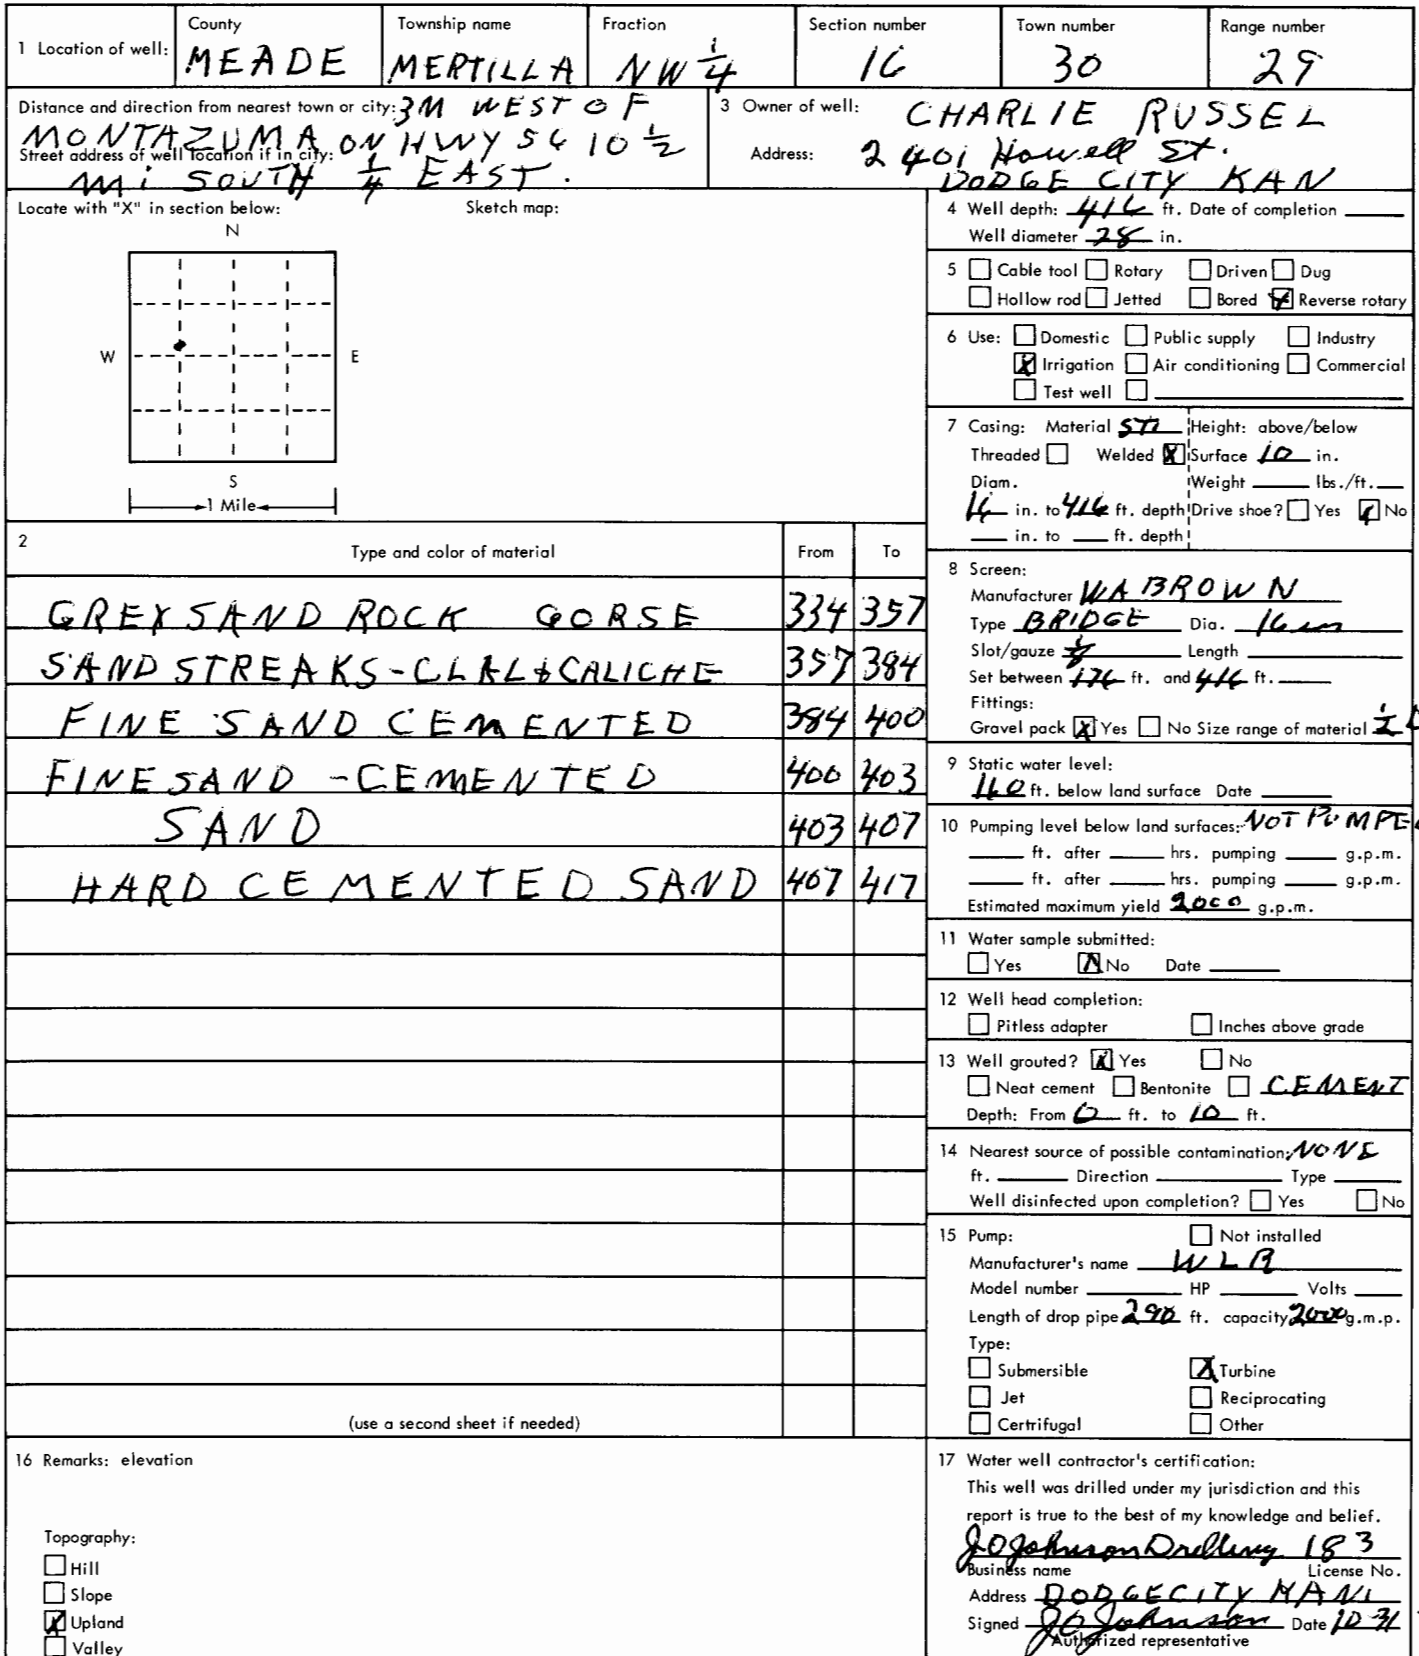 1 Location of well: County Township name Fraction Section number Town number Range number
MEADE MERTILLA NW 1/4 16 30 29
Distance and direction from nearest town or city: 3M WEST OF
MONTAZUMA ON HWY 56 10 1/2
Street address of well location if in city:
MI SOUTH 1/4 EAST.
3 Owner of well: CHARLIE RUSSEL
Address: 2401 Howell St.
DODGE CITY KAN
Locate with "X" in section below: Sketch map:
N
W E
S
1 Mile
4 Well depth: 416 ft. Date of completion
Well diameter 28 in.
5 Cable tool Rotary Driven Dug
Hollow rod Jetted Bored X Reverse rotary
6 Use: Domestic Public supply Industry
X Irrigation Air conditioning Commercial
Test well
7 Casing: Material STL Height: above/below
Threaded Welded X Surface 10 in.
Diam. Weight lbs./ft.
16 in. to 416 ft. depth Drive shoe? Yes X No
in. to ft. depth
2 Type and color of material From To
GREY SAND ROCK GORSE 334 357
SAND STREAKS-CLAL & CALICHE 357 384
FINE SAND CEMENTED 384 400
FINE SAND - CEMENTED 400 403
SAND 403 407
HARD CEMENTED SAND 407 417
(use a second sheet if needed)
8 Screen:
Manufacturer WA BROWN
Type BRIDGE Dia. 16 in
Slot/gauze Length
Set between 176 ft. and 416 ft.
Fittings:
Gravel pack X Yes No Size range of material 1/2
9 Static water level:
160 ft. below land surface Date
10 Pumping level below land surfaces: NOT PUMPED
ft. after hrs. pumping g.p.m.
ft. after hrs. pumping g.p.m.
Estimated maximum yield 2000 g.p.m.
11 Water sample submitted:
Yes X No Date
12 Well head completion:
Pitless adapter Inches above grade
13 Well grouted? X Yes No
Neat cement Bentonite CEMENT
Depth: From 0 ft. to 10 ft.
14 Nearest source of possible contamination: NONE
ft. Direction Type
Well disinfected upon completion? Yes No
15 Pump: Not installed
Manufacturer's name WLR
Model number HP Volts
Length of drop pipe 290 ft. capacity 2000 g.m.p.
Type:
Submersible X Turbine
Jet Reciprocating
Certrifugal Other
16 Remarks: elevation
Topography:
Hill
Slope
X Upland
Valley
17 Water well contractor's certification:
This well was drilled under my jurisdiction and this
report is true to the best of my knowledge and belief.
JO Johnson Drilling 183
Business name License No.
Address DODGE CITY KANS
Signed JO Johnson Date 10 31
Authorized representative